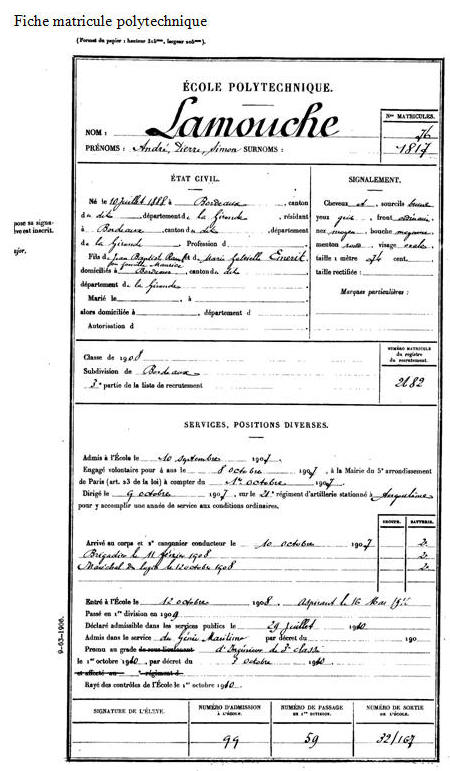 Fiche matricule polytechnique
(Format du papier : hauteur 315mm, largeur 205mm).
ÉCOLE POLYTECHNIQUE.
Nos MATRICULES.
NOM : Lamouche
76
PRÉNOMS : André, Pierre, Simon SURNOMS :
1817
ÉTAT CIVIL.
Né le 10 juillet 1888 à Bordeaux, canton
du dit, département de la Gironde, résidant
à Bordeaux, canton du dit, département
de la Gironde, Profession d
Fils de Jean Baptiste et de Marie Gabrielle Emerit
domiciliés à Bordeaux, canton du dit
département de la Gironde
Marié le , à
alors domiciliée à , département d
Autorisation d
SIGNALEMENT.
Cheveux et sourcils
yeux gris, front
nez moyen, bouche moyenne
menton rond, visage ovale
taille : 1 mètre 74 cent.
taille rectifiée :
Marques particulières :
pose sa signa-
ève est inscrit.
ajor.
Classe de 1908
Subdivision de Bordeaux
3e partie de la liste de recrutement
NUMÉRO MATRICULE
du registre
du recrutement.
2682
SERVICES, POSITIONS DIVERSES.
Admis à l'École le 10 septembre 1907
Engagé volontaire pour 4 ans le 8 octobre 1907, à la Mairie du 5e arrondissement
de Paris (art. 23 de la loi) à compter du 1er octobre 1907
Dirigé le 9 octobre 1907, sur le 21e régiment d'artillerie stationné à Angoulême
pour y accomplir une année de service aux conditions ordinaires.
GROUPE. BATTERIE.
Arrivé au corps et 2e canonnier conducteur le 10 octobre 1907 2e
Brigadier le 11 février 1908 2e
Maréchal des logis le 12 octobre 1908 2e
Entré à l'École le 12 octobre 1908. Aspirant le 16 Mai
Passé en 1re division en 1909
Déclaré admissible dans les services publics le 29 juillet 1910
Admis dans le service du Génie Maritime par décret du 190
Promu au grade de sous-lieutenant d'Ingénieur de 3e classe
le 1er octobre 1910, par décret du 7 octobre 1910
et affecté au e régiment d
Rayé des contrôles de l'École le 1er octobre 1910.
9-63-1908.
SIGNATURE DE L'ÉLÈVE.
NUMÉRO D'ADMISSION
À L'ÉCOLE.
99
NUMÉRO DE PASSAGE
EN 1re DIVISION.
59
NUMÉRO DE SORTIE
DE L'ÉCOLE.
32/167